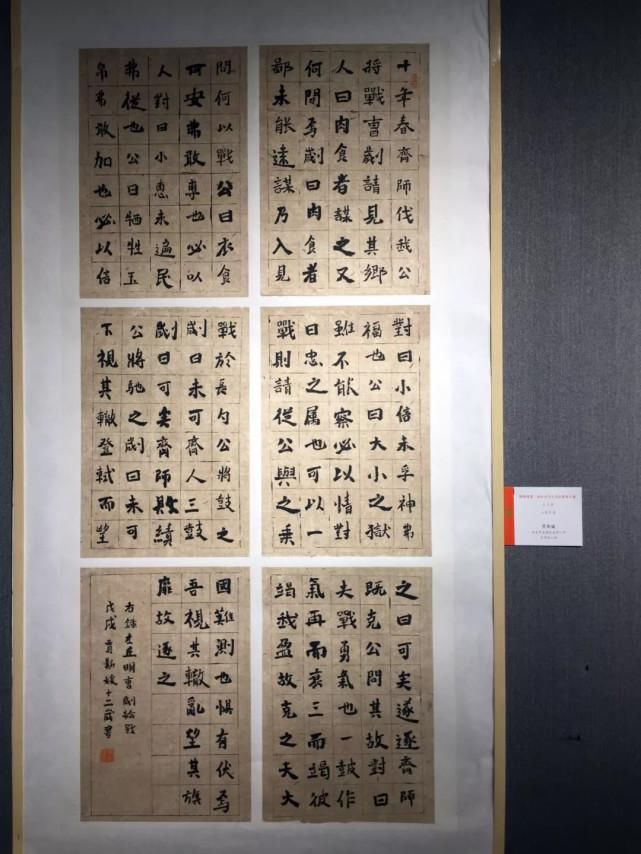 十年春齊師伐我公
將戰曹劌請見其鄉
人曰肉食者謀之又
何間焉劌曰肉食者
鄙未能遠謀乃入見
問何以戰公曰衣食
所安弗敢專也必以
人對曰小惠未遍民
弗從也公曰牺牲玉
帛弗敢加也必以信
對曰小信未孚神弗
福也公曰大小之獄
雖不能察必以情對
曰忠之属也可以一
戰則請從公與之乘
戰於長勺公將鼓之
劌曰未可齊人三鼓
劌曰可矣齊師敗績
公將馳之劌曰未可
下視其轍登軾而望
之曰可矣遂逐齊師
既克公問其故對曰
夫戰勇氣也一鼓作
氣再而衰三而竭彼
竭我盈故克之夫大
國難測也懼有伏焉
吾視其轍亂望其旗
靡故遂之
右錄左丘明曹劌論戰
戊戌 十二歲書